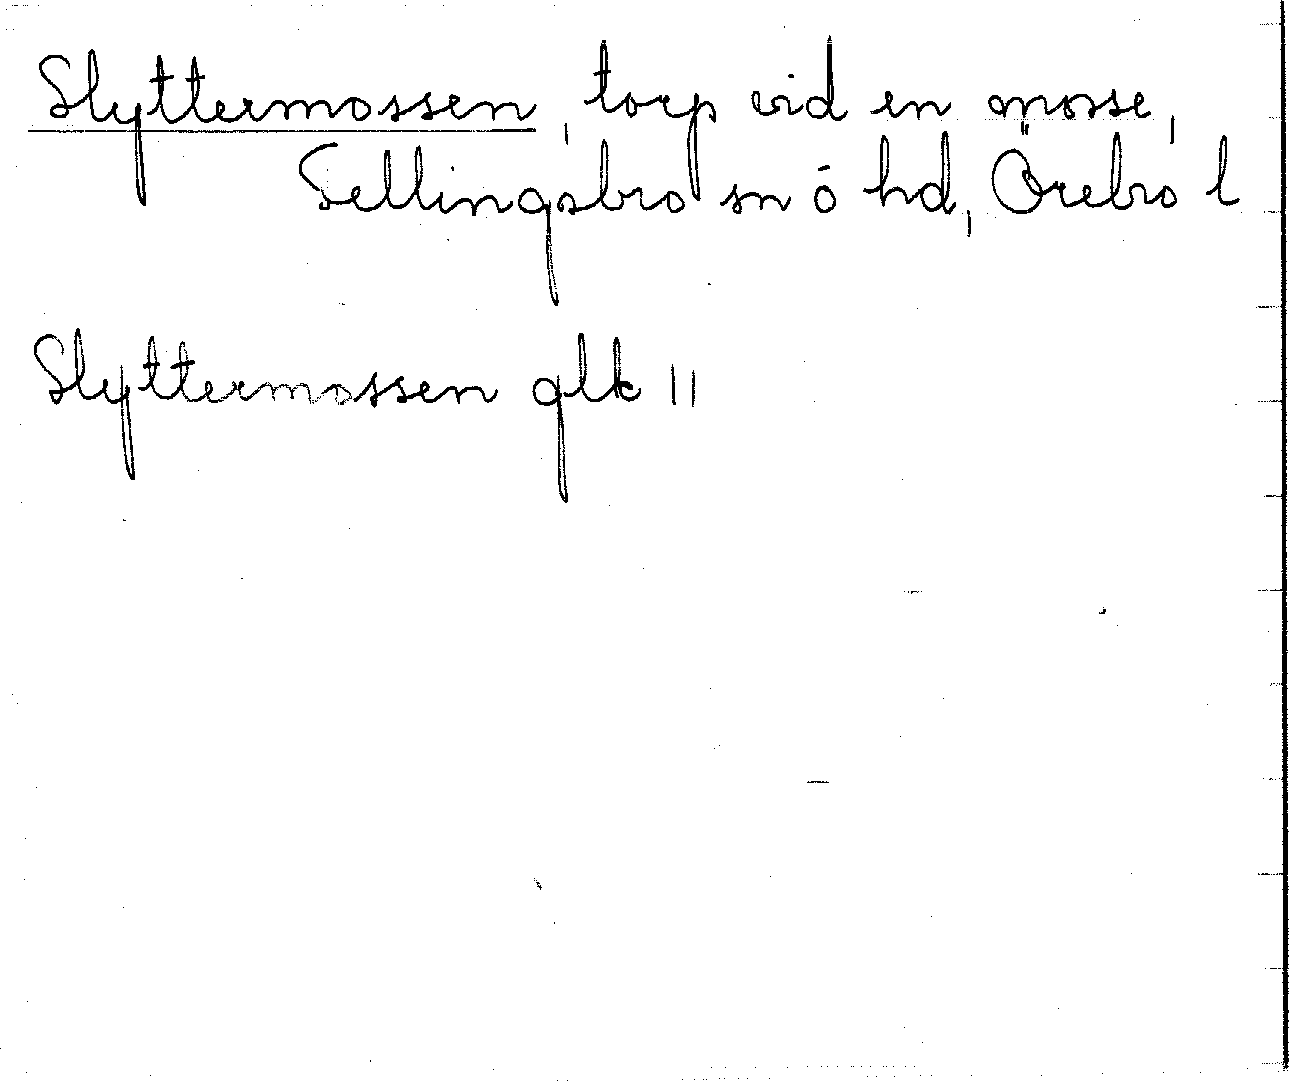 Slyttermossen, torp vid en mosse,
Fellingsbro sn o hd, Örebro l
Slyttermossen glk 11